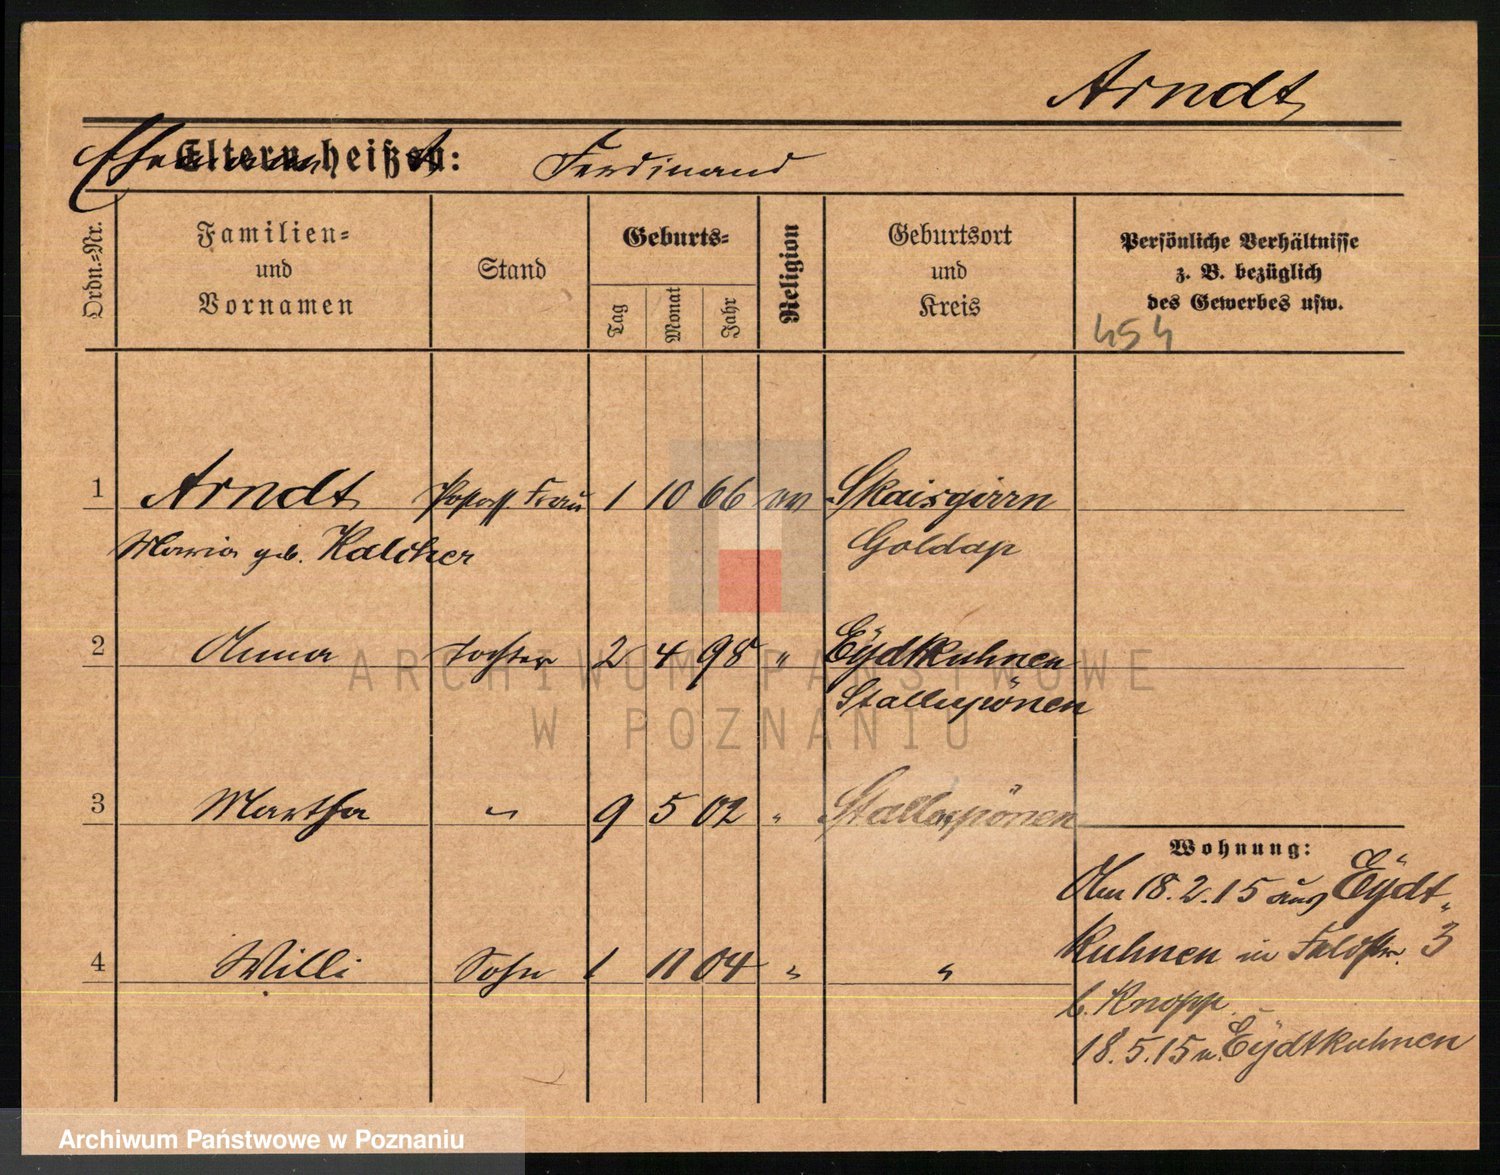 Arndt
Ehemann heißt: Ferdinand
Eltern heißen:
Ordn.-Nr.
Familien-
und
Vornamen
Stand
Geburts-
Tag
Monat
Jahr
Religion
Geburtsort
und
Kreis
Persönliche Verhältnisse
z. B. bezüglich
des Gewerbes usw.
454
1 Arndt Frau 1 10 66 ev Skaisgirrn
Maria geb. Kalcher Goldap
2 Anna Tochter 2 4 98 " Eydtkuhnen
Stallupönen
3 Martha " 9 5 02 " Stallupönen
Wohnung:
Am 18.2.15 aus Eydt-
4 Willi Sohn 1 11 04 " "
kuhnen in Feldstr. 3
b. Knopp
18.5.15 n. Eydtkuhnen
ARCHIWUM PAŃSTWOWE
W POZNANIU
Archiwum Państwowe w Poznaniu